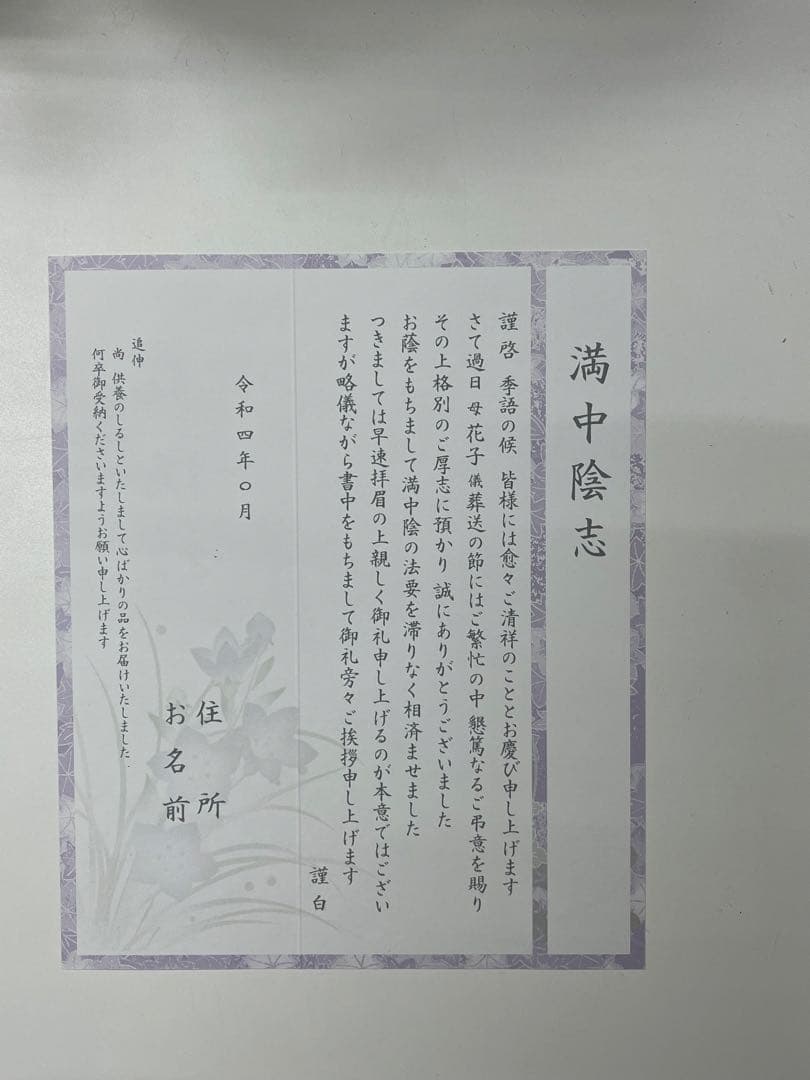 満中陰志
謹啓 季語の候 皆様には愈々ご清祥のこととお慶び申し上げます
さて過日 母 花子 儀 葬送の節にはご繁忙の中 懇篤なるご弔意を賜り
その上格別のご厚志に預かり 誠にありがとうございました
お蔭をもちまして満中陰の法要を滞りなく相済ませました
つきましては早速拝眉の上親しく御礼申し上げるのが本意ではござい
ますが略儀ながら書中をもちまして御礼旁々ご挨拶申し上げます
謹白
令和四年〇月
住所
お名前
追伸
尚 供養のしるしといたしまして心ばかりの品をお届けいたしました
何卒御受納くださいますようお願い申し上げます